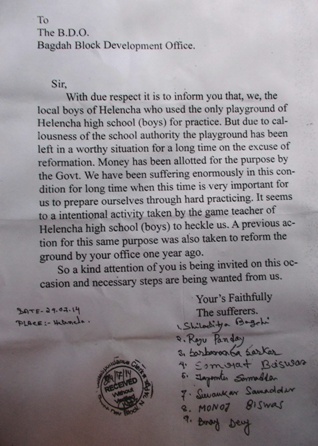 To
The B.D.O.
Bagdah Block Development Office.
Sir,
With due respect it is to inform you that, we, the
local boys of Helencha who used the only playground of
Helencha high school (boys) for practice. But due to cal-
lousness of the school authority the playground has been
left in a worthy situation for a long time on the excuse of
reformation. Money has been allotted for the purpose by
the Govt. We have been suffering enormously in this con-
dition for long time when this time is very important for
us to prepare ourselves through hard practicing. It seems
to a intentional activity taken by the game teacher of
Helencha high school (boys) to heckle us. A previous ac-
tion for this same purpose was also taken to reform the
ground by your office one year ago.
So a kind attention of you is being invited on this oc-
casion and necessary steps are being wanted from us.
Your's Faithfully
The sufferers.
DATE-29.07.14
PLACE:- Helencha
1. Shiladitya Bagchi
2. Raju Panday
3. Sarkar
4. Biswas
5.
7. Suvankar Samaddar
8. MONOJ BISWAS
9. Dey
RECEIVED